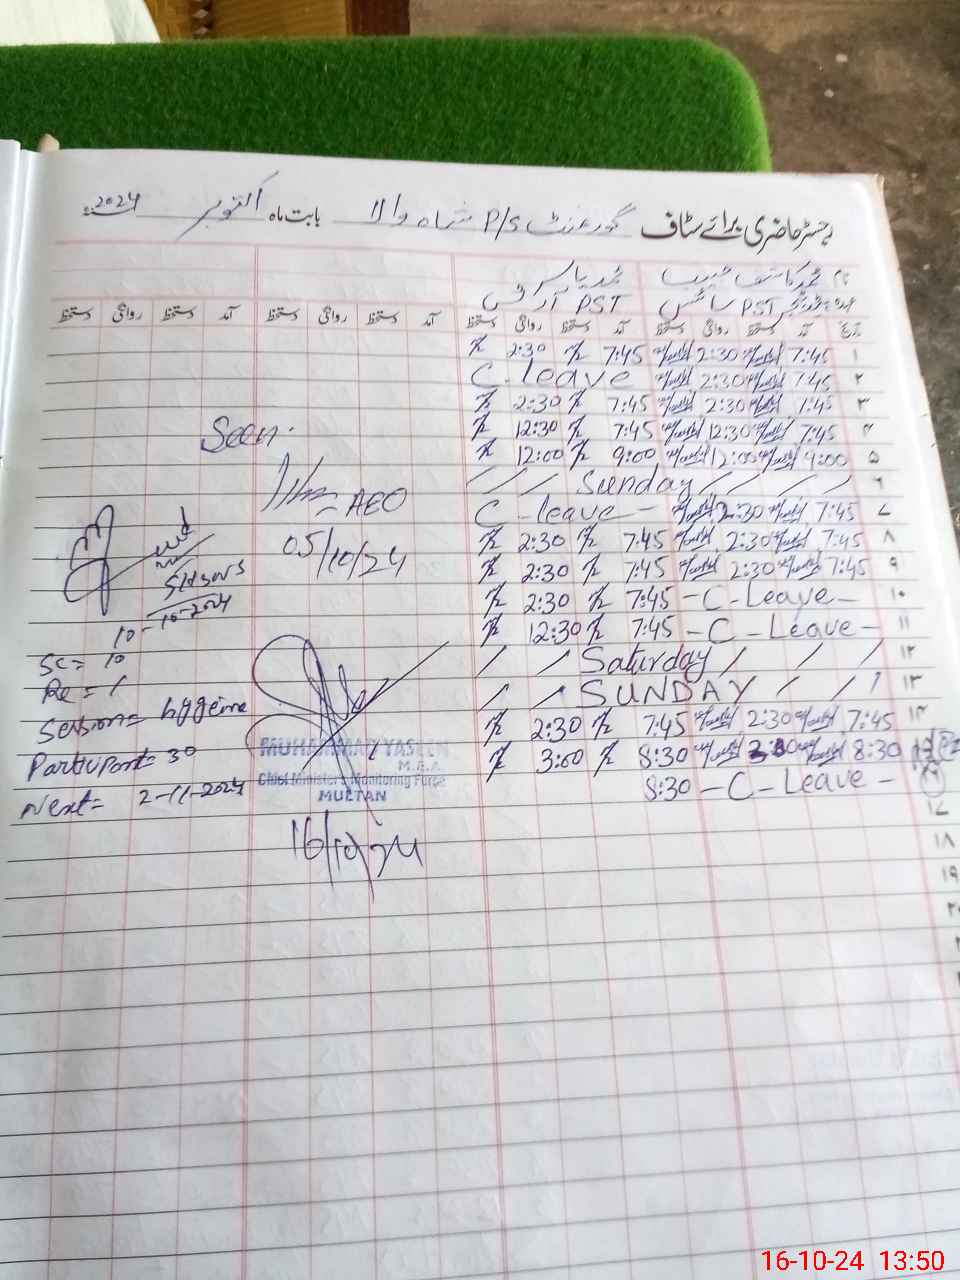 رجسٹر حاضری برائے سٹاف گورنمنٹ P/S شاہ والا بابت ماہ اکتوبر 2024
نام محمد کاشف حبیب محمد یاسر
PST سائنس PST آرٹس
تاریخ آمد دستخط روانگی دستخط آمد دستخط روانگی دستخط آمد دستخط روانگی دستخط آمد دستخط روانگی دستخط
۱ 7:45 2:30 7:45 2:30
۲ 7:45 2:30 C-leave
۳ 7:45 2:30 7:45 2:30
۴ 7:45 12:30 7:45 12:30
۵ 9:00 12:00 9:00 12:00
۶ / / / / Sunday / /
۷ 7:45 2:30 C-leave-
۸ 7:45 2:30 7:45 2:30
۹ 7:45 2:30 7:45 2:30
۱۰ -C-Leave- 7:45 2:30
۱۱ -C-Leave- 7:45 12:30
۱۲ / / / Saturday / /
۱۳ / / / SUNDAY / /
۱۴ 7:45 2:30 7:45 2:30
۱۵ 8:30 8:30 3:00
۱۶ -C-Leave- 8:30
۱۷
۱۸
۱۹
۲۰
Seen.
AEO
05/10/24
10-10-2024
Sc = 10
Re = 1
Session = hygeine
Participant = 30
Next = 2-11-2024
MUHAMMAD YASEEN
M.E.A
Chief Minister's Monitoring Force
MULTAN
16/10/24
16-10-24 13:50